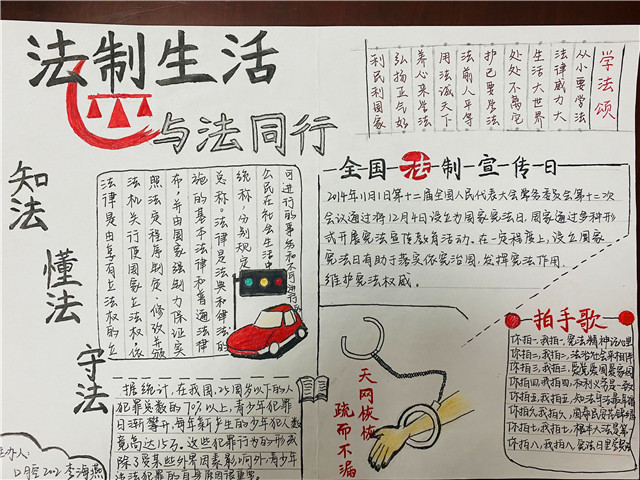 法制生活
与法同行
知法
懂法
守法
学法颂
从小要学法
法律威力大
生活大世界
处处不离它
护己要学法
法前人平等
用法诚天下
养心来学法
弘扬正气好
利民利国家
全国法制宣传日
2014年11月1日第十二届全国人民代表大会常务委员会第十一次
会议通过将12月4日设立为国家宪法日,国家通过多种形
式开展宪法宣传教育活动。在一定程度上,设立国家
宪法日有助于落实依宪治国,发挥宪法作用
维护宪法权威。
法律是由享有立法权的立
法机关行使国家立法权,依
照法定程序制定、修改并颁
布,并由国家强制力保证实
施的基本法律和普通法律
总称。法律是法典和律法的
统称,分别规定
公民在社会生活中
可进行的事务和不可进行
据统计,在我国,25周岁以下的人
犯罪总数的70%以上,青少年犯罪
日渐攀升,每年新产生的少年犯人数
竟高达15万。这些犯罪行为的形成
除了受某些外界因素影响外,青少年
违法犯罪的自身原因很重要。
天网恢恢
疏而不漏
拍手歌
你拍一,我拍一,宪法精神记心里
你拍二,我拍二,法治社会平和
你拍三,我拍三
你拍四,我拍四
你拍五,我拍五
你拍六,我拍六
你拍七,我拍七
你拍八,我拍八,宪法日里
主办人:
口腔2102 李海燕